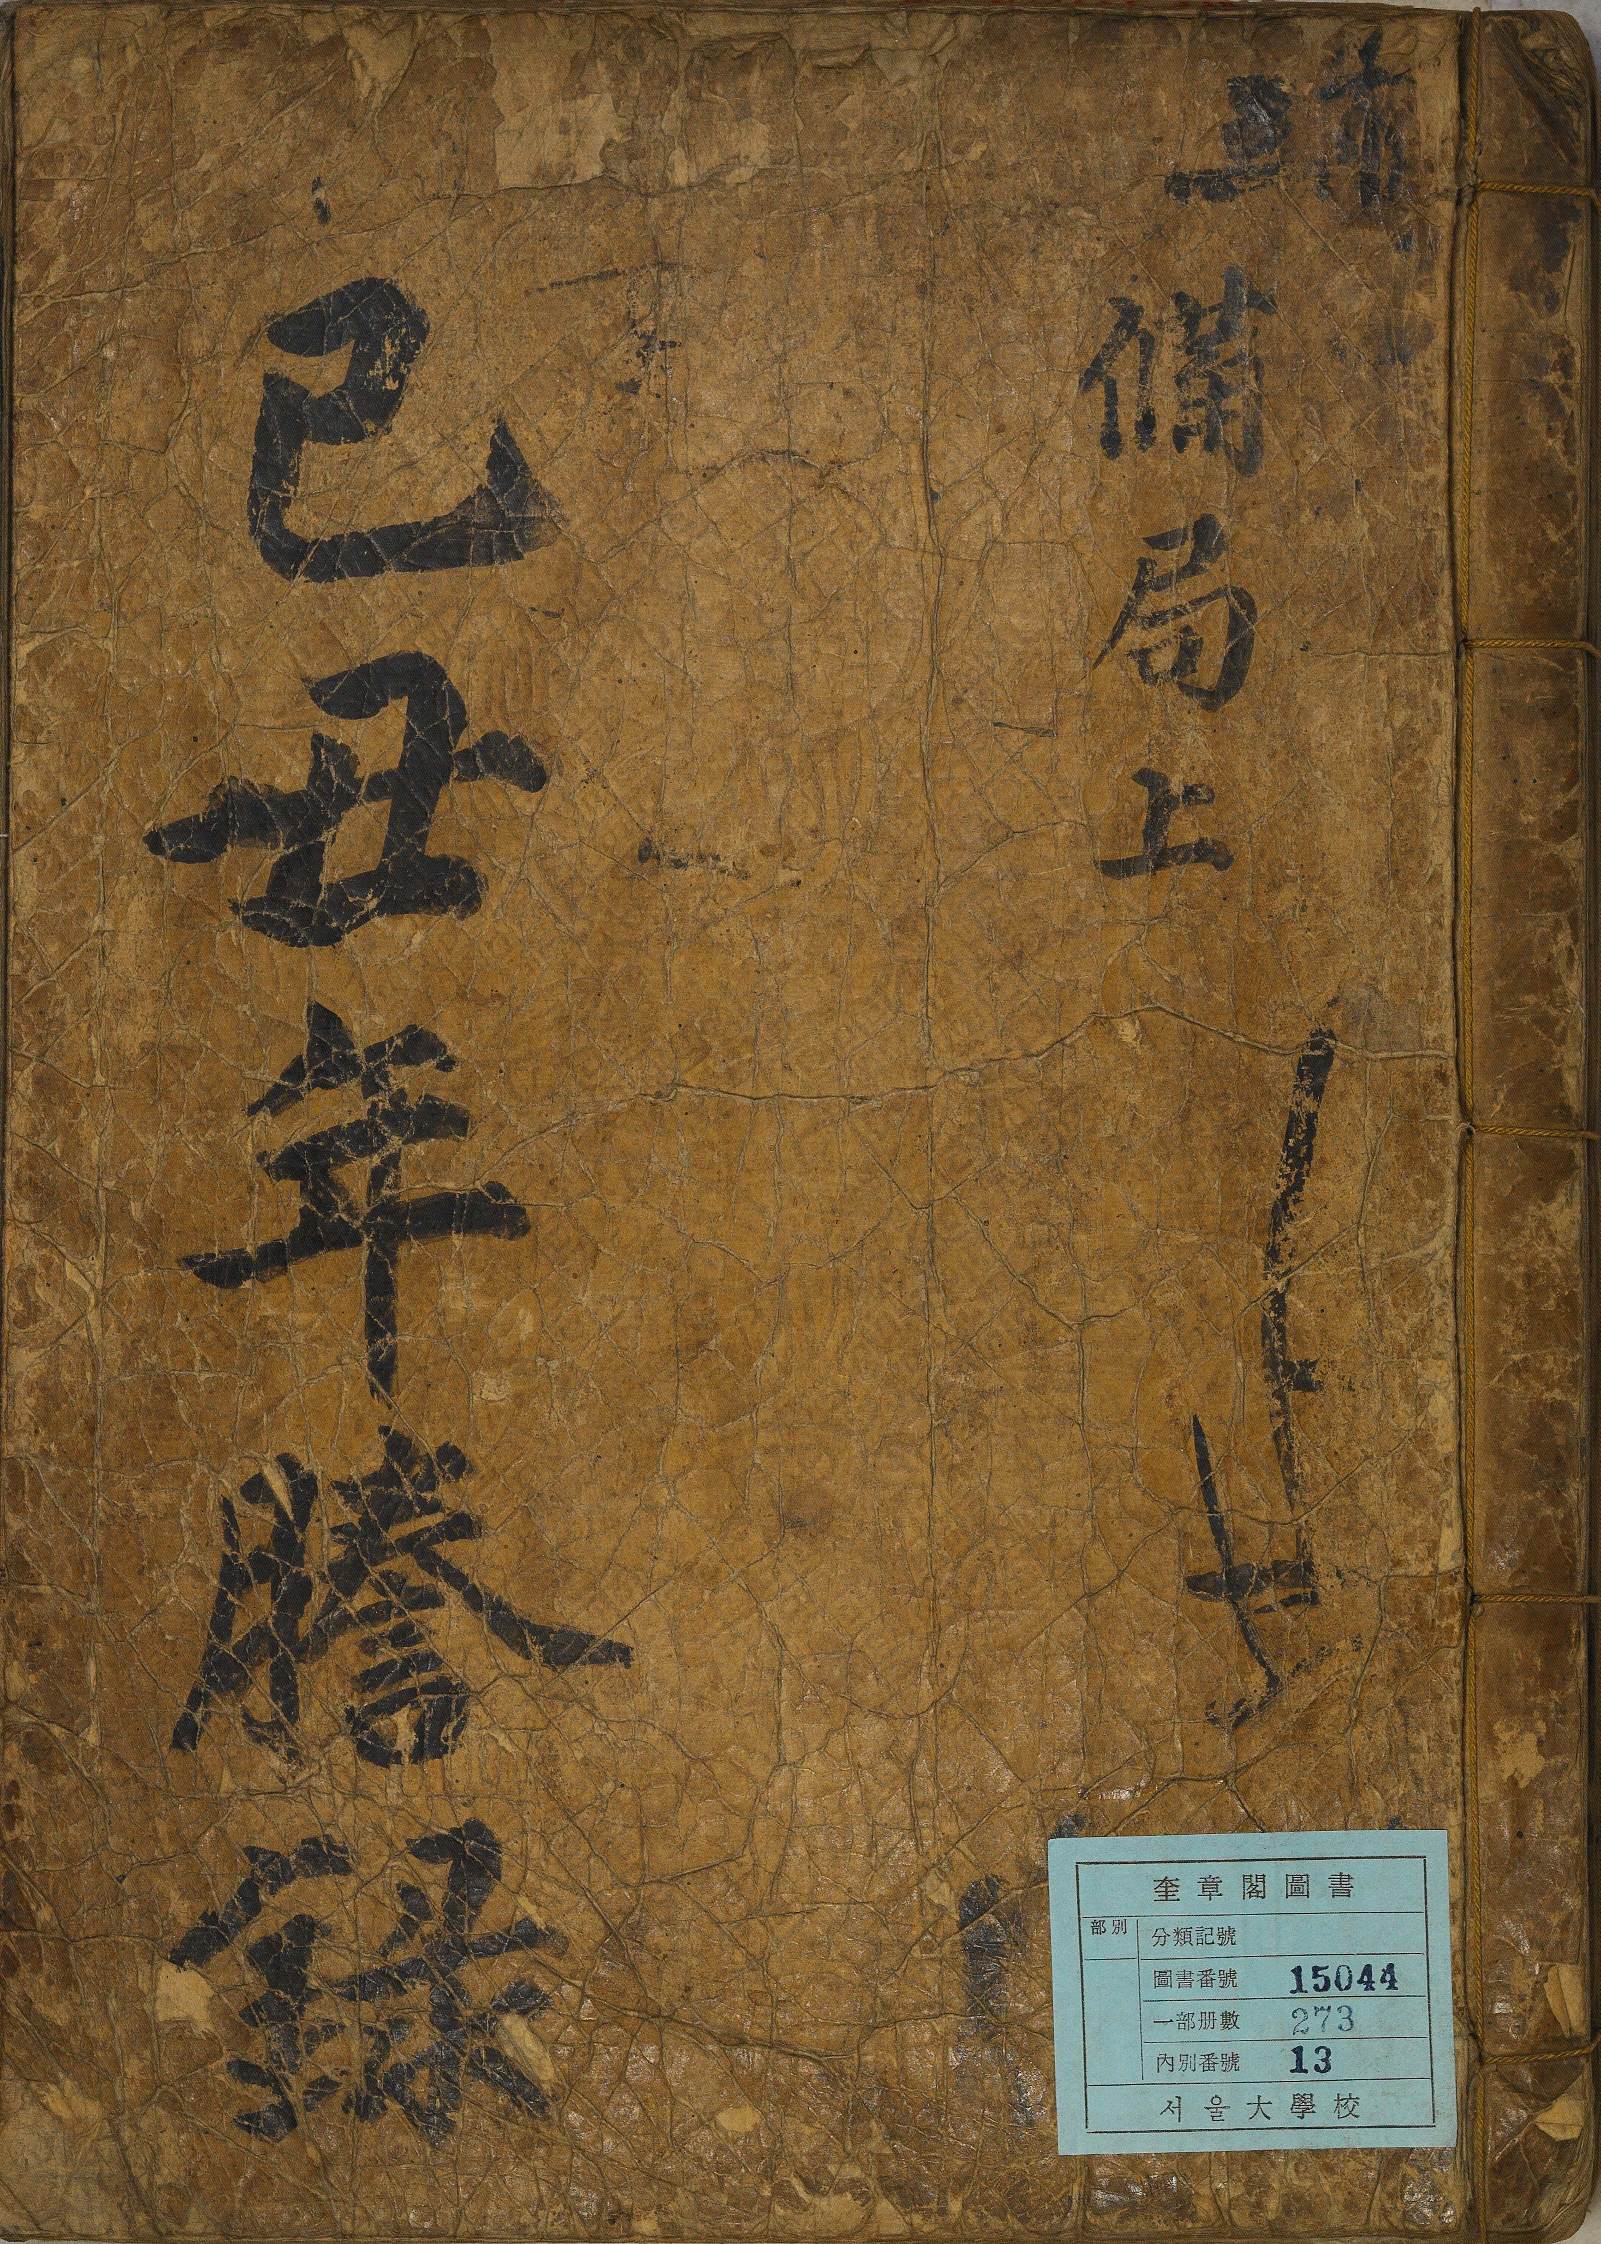 備局上
己丑年謄錄
奎章閣圖書
部別
分類記號
圖書番號 15044
一部册數 273
內別番號 13
서울大學校